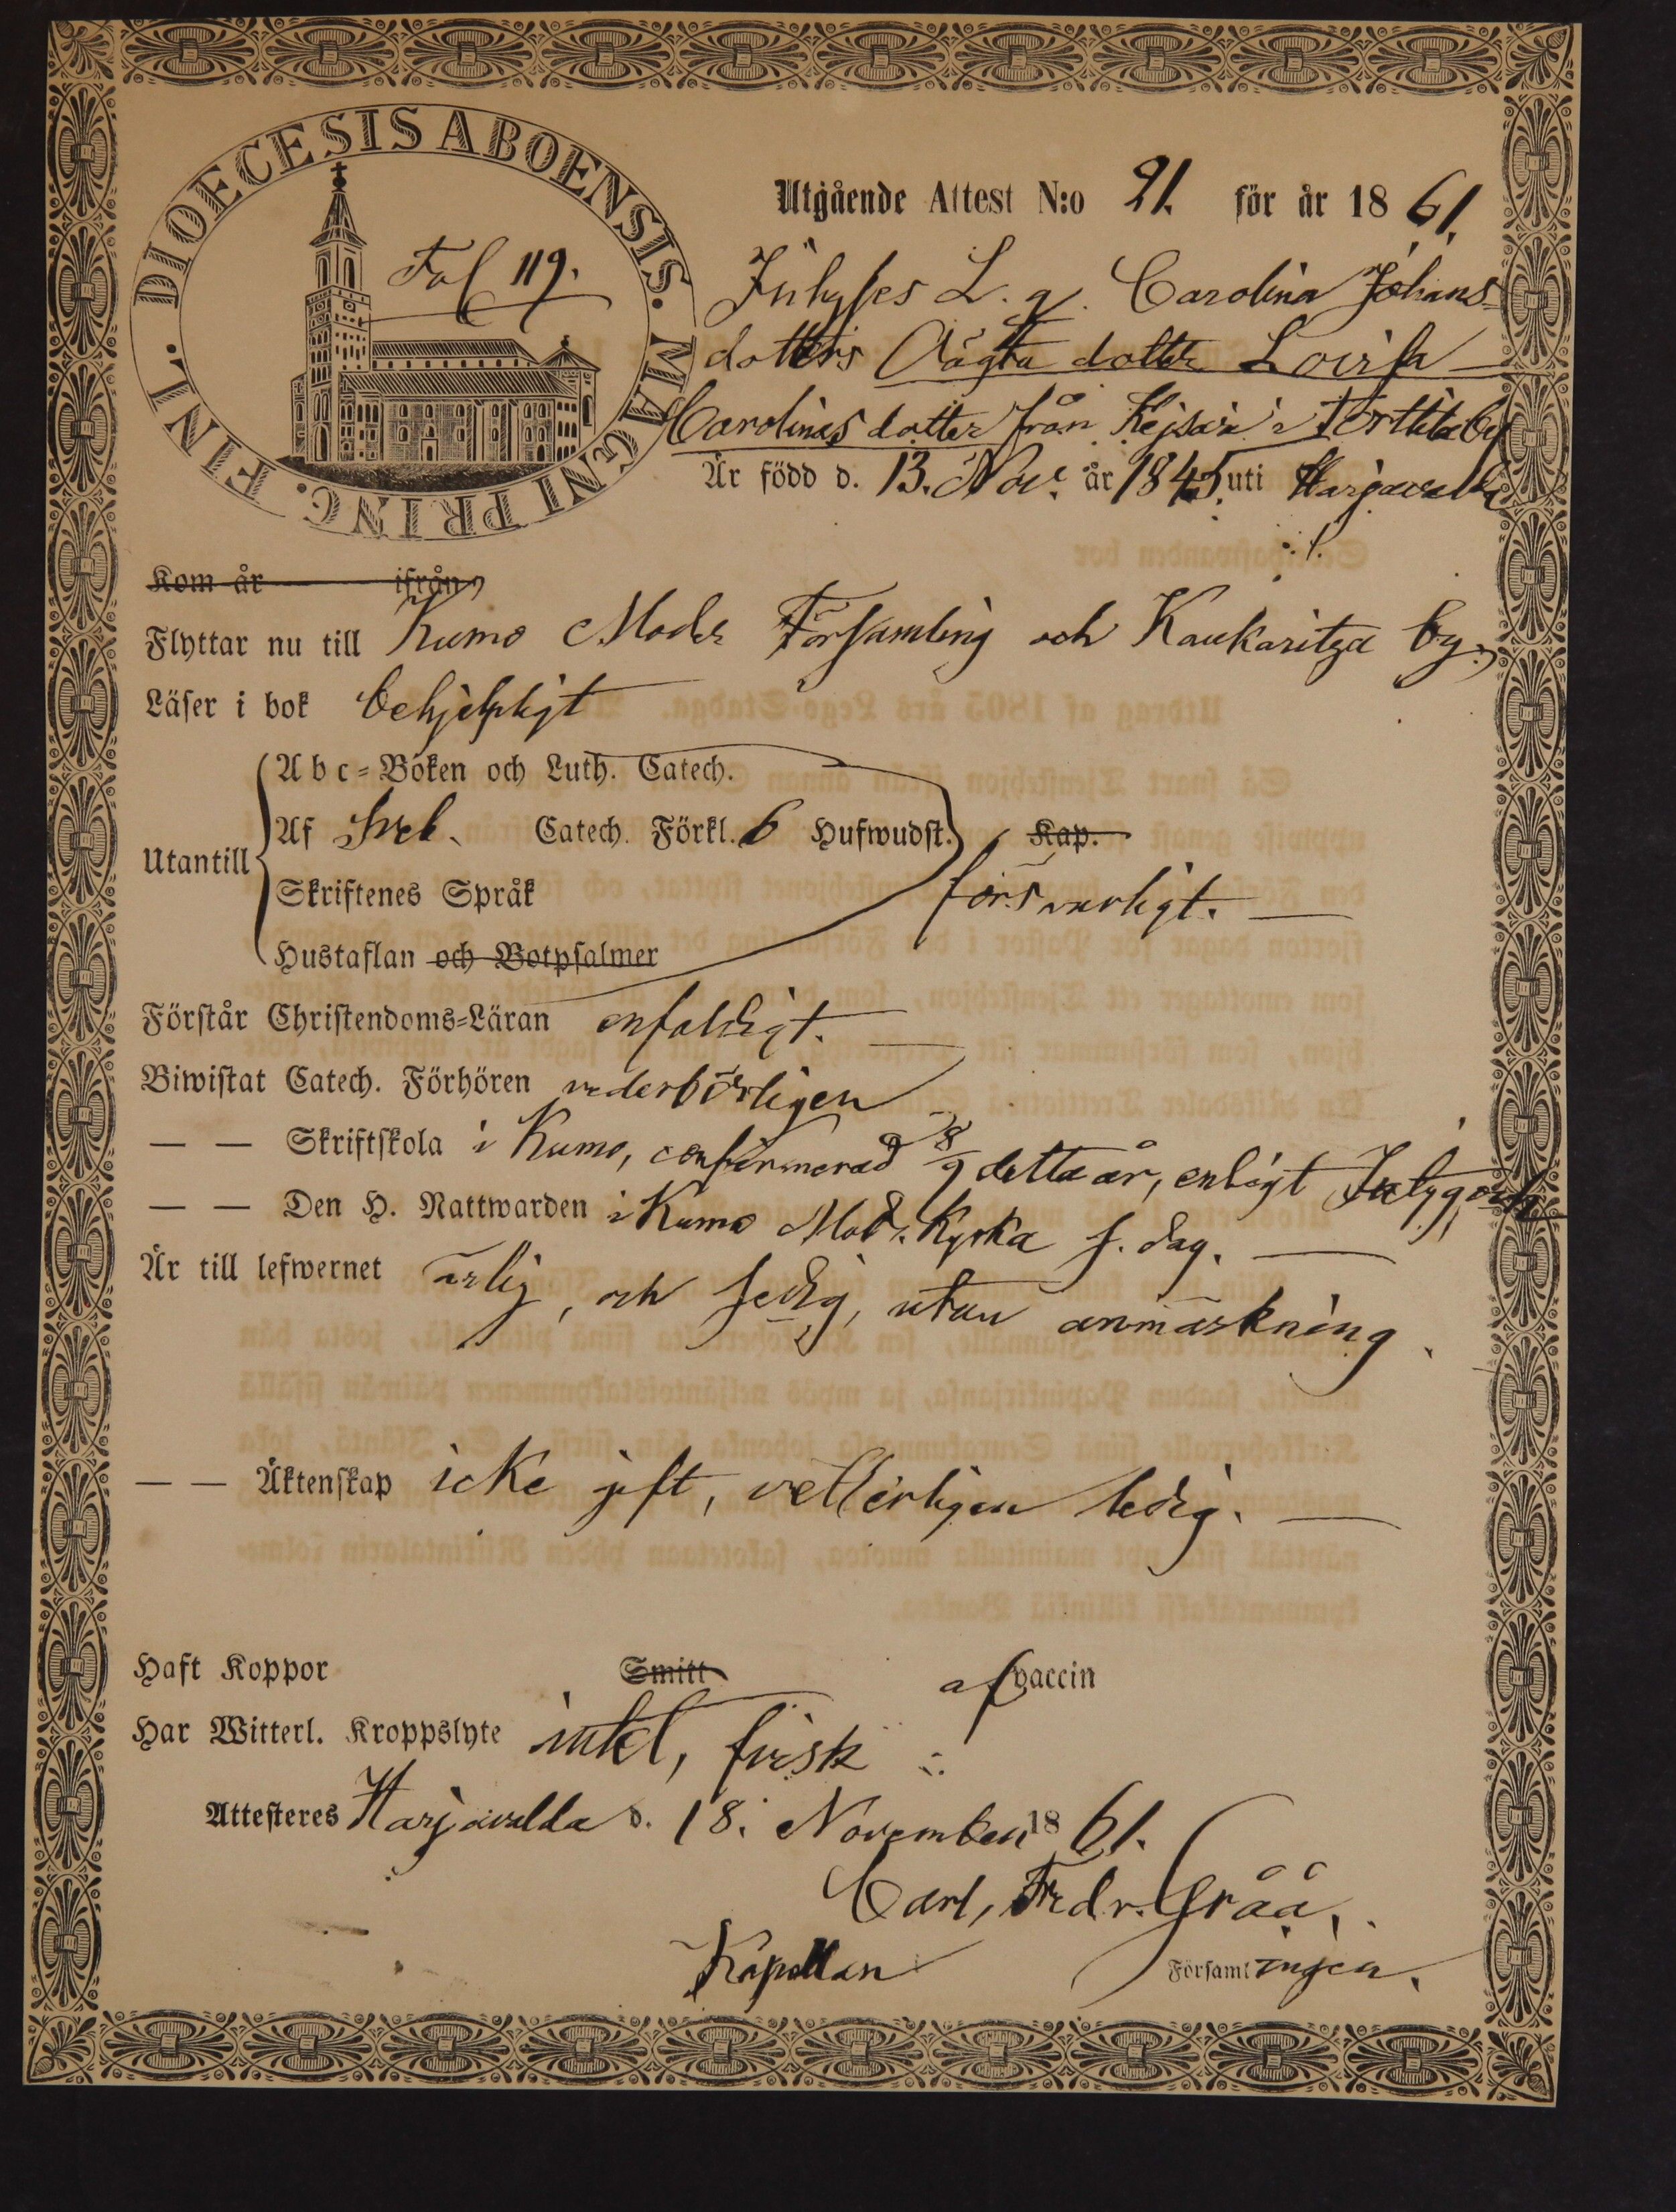 DIOECESIS ABOENSIS. MAGNI PRINC. FINL.
Fol 119.
Utgående Attest N:o 21. för år 1861.
Inhyses L. q. Carolina Johans-
dotters Oägta dotter Lovisa
Carolinas dotter från Kejsari i Torttila by
Är född d. 13. Nov. år 1845 uti Harjavalta
Kom år ifrån
Flyttar nu till Kumo Moder Församling och Kaukaritza by.
Läser i bok behjelpligt
Abc=Boken och Luth. Catech.
Af Sveb. Catech. Förkl. 6 Hufwudst. Kap.
Utantill
Skriftenes Språk försvarligt.
Hustaflan och Botpsalmer
Förstår Christendoms=Läran enfaldigt.
Biwistat Catech. Förhören vederbörligen
— — Skriftskola i Kumo, confirmerad 8/9 detta år, enligt Intyg, och
— — Den H. Nattwarden i Kumo Mod. Kyrka s. dag.
Är till lefwernet ärlig, och sedig, utan anmärkning.
— — Äktenskap icke gift, vetterligen ledig.
Haft Koppor Smitt af vaccin
Har Witterl. Kroppslyte intet, frisk
Attesteres Harjavalda d. 18. November 1861.
Carl, Fredr. Gråå.
Kapellan Församlingen.